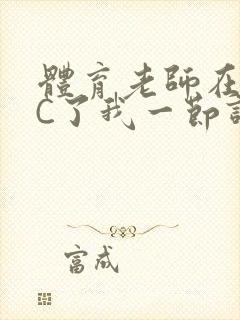 體育老師在
C了我一節
富成